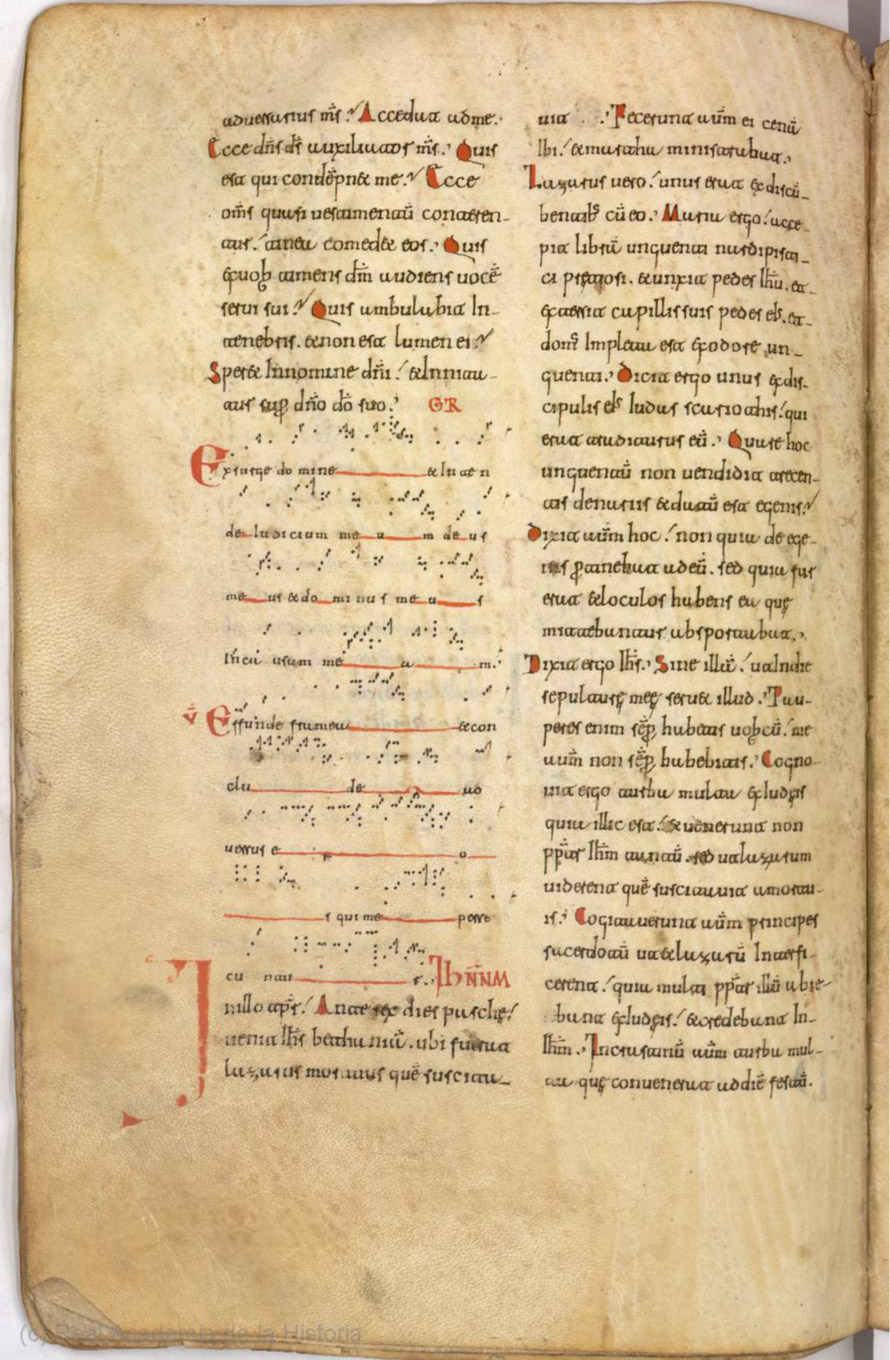 aduersarius m̄s. Accedat ad me.
Ecce dn̄s d̄s auxiliator m̄s. Quis
est qui condēpn& me. Ecce
om̄s quasi uestimentū conteren-
tur. tinea comed& eos. Quis
ex uob timens dm̄ audiens uocē
serui sui. Quis ambulabit In
tenebris. & non est lumen ei.
Sper& In nomine dn̄i. & Innita-
tur sup dn̄o dō suo. GR
Exsurge domine & Inten
de Iudicium meum deus
meus & dominus meus
In causam meam.
V̄ Effunde frameam & con
clude
aduersus eos
qui me perse
cuntur. IhNNM
In illo tp̄r. Ante sex dies paschę
uenit Ihs̄ bethaniā. ubi fuerat
lazarus mortuus quē suscitau-
it. Fecerunt aūm ei cenā
Ibi. & martha ministrabat.
Lazarus vero. unus erat ex discū-
bentib; cū eo. Maria ergo. acce-
pit librā unguenti nardi pisti-
ci pretiosi. & unxit pedes Ihū. et
extersit capillis suis pedes eis. et
dom; Impleta est ex odore un-
guenti. Dicit ergo unus ex dis-
cipulis eis Iudas scariothis. qui
erat traditurus eū. Quare hoc
unguentū non uendidit trecen-
tis denariis & datū est egenis.
Dixit aūm hoc. non quia de ege-
nis ptinebat ad eū. sed quia fur
erat & loculos habens ea quę
mittebantur absportabat.
Dixit ergo Ihs̄. Sine illā. ut In die
sepulturę meę seru& illud. Pau-
peres enim sēp habetis uobcū. me
aūm non sēp habebitis. Cogno-
uit ergo turba multa ex Iudęis
quia illic est. & uenerunt non
pp̄ter Ihm̄ tantū. sed ut lazarum
uiderent quē suscitauit a mortu-
is. Cogitauerunt aūm principes
sacerdotū ut & lazarū Interfi-
cerent. quia multi pp̄ter illū abie-
bant ex Iudęis. & credebant In
Ihm̄. In crastinū aūm turba mul-
ta quę conuenerat ad diē festū.
(c) Real Academia de la Historia